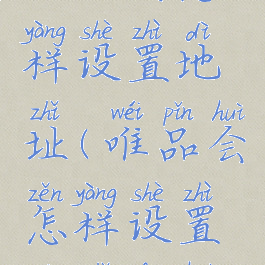 yàng shè zhì dì
样设置地
zhǐ wéi pǐn huì
址(唯品会
zěn yàng shè zhì
怎样设置